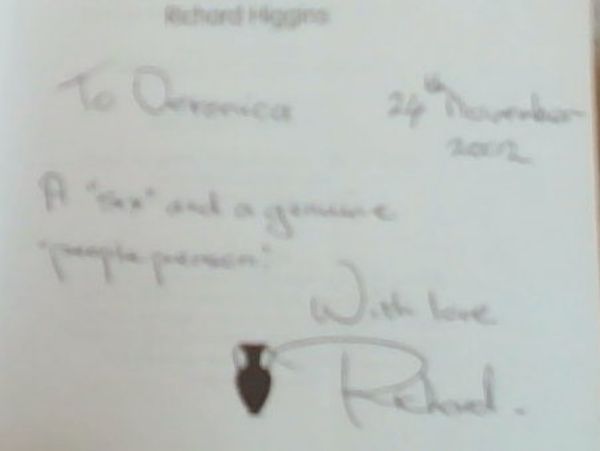 Richard Higgins
To Veronica
24th November
2002
A and a genuine
"people-person."
With love
Richard.